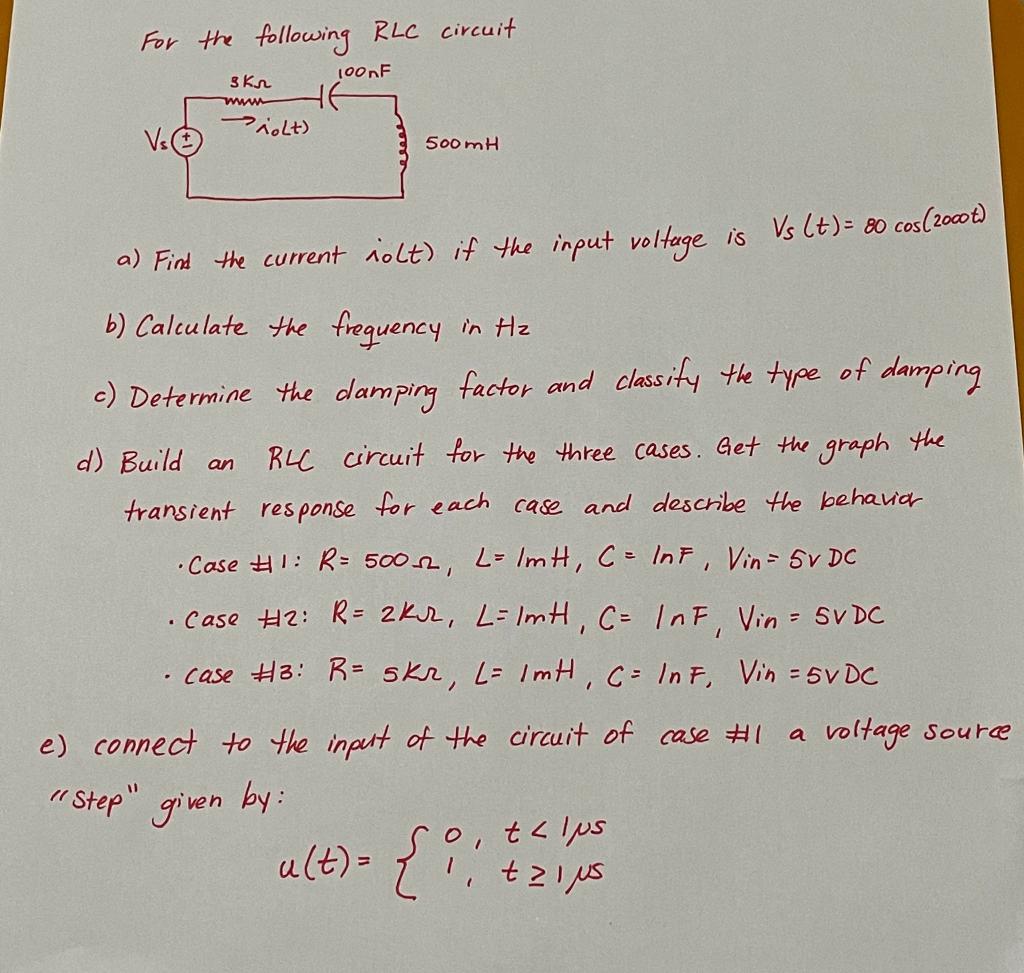 For the following RLC circuit
3KΩ
100nF
io(t)
Vs
500mH
a) Find the current io(t) if the input voltage is Vs(t)= 80 cos(2000t)
b) Calculate the frequency in Hz
c) Determine the damping factor and classify the type of damping
d) Build an RLC circuit for the three cases. Get the graph the
transient response for each case and describe the behavior
· Case #1: R= 500Ω, L= 1mH, C= 1nF, Vin= 5V DC
· Case #2: R= 2KΩ, L= 1mH, C= 1nF, Vin = 5V DC
· Case #3: R= 5KΩ, L= 1mH, C= 1nF, Vin = 5V DC
e) connect to the input of the circuit of case #1 a voltage source
"Step" given by:
u(t)= { 0, t < 1μs
1, t ≥ 1μs